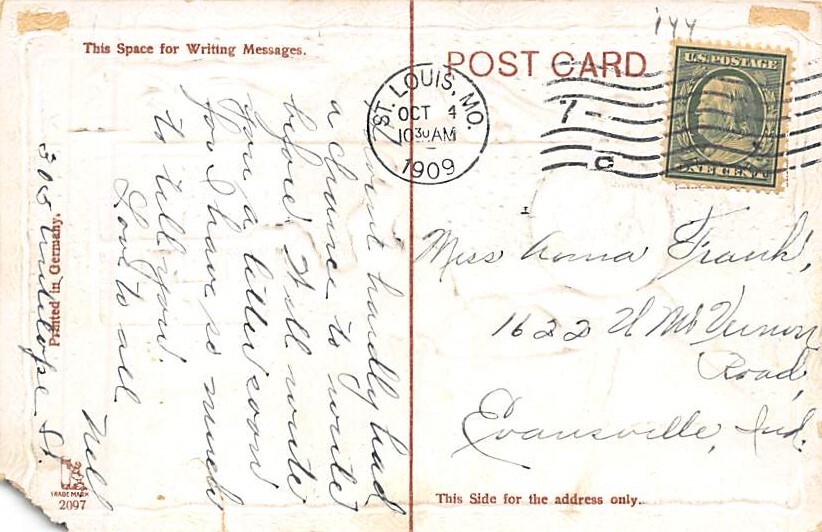 144
This Space for Writing Messages.
POST CARD
ST. LOUIS, MO.
OCT 4
10 30 AM
1909
7
C
U.S. POSTAGE
ONE CENT
hardly had
a chance to write
before. Will write
you a letter soon
for I have so much
to tell you.
Love to all
Nell
305 St.
Printed in Germany.
TRADE MARK
2097
Miss Anna Frank,
1622 Mt Vernon
Road,
Evansville, Ind.
This Side for the address only.